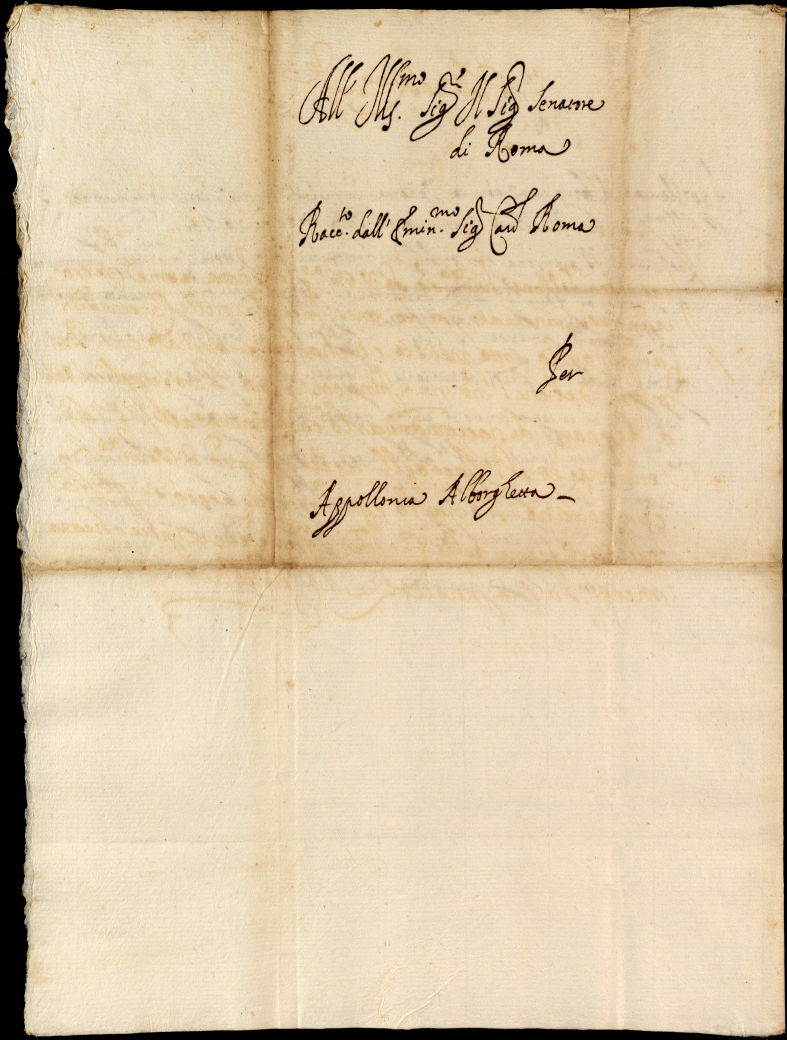 All' Ill.mo Sig.r Il Sig.r Senatore
di Roma
Racc.to dall' Emin.mo Sig.r Card Roma
Per
Appollonia Alborghetta –